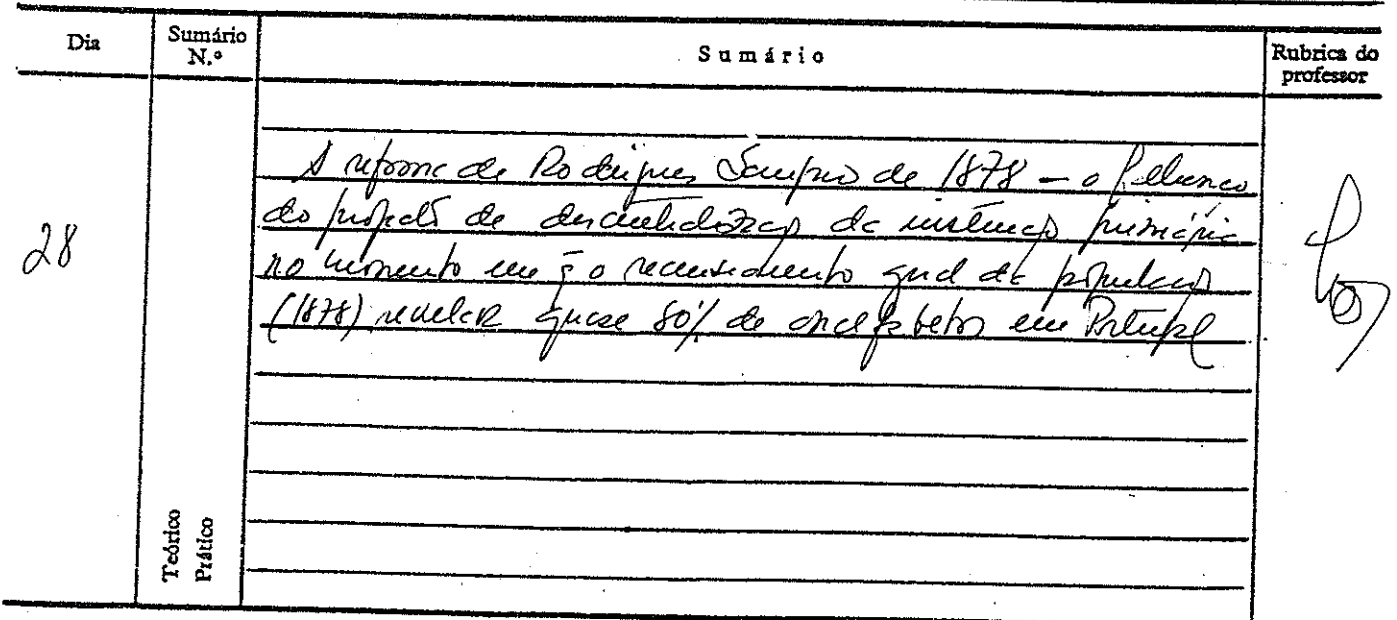 Dia
Sumário N.º
Sumário
Rubrica do professor
28
A reforma de Rodrigues Sampaio de 1878 — o falhanço
do projecto de descentralização da instrução primária
no momento em q̃ o recenseamento geral da população
(1878) revelar quase 80% de analfabetos em Portugal
Teórico
Prático